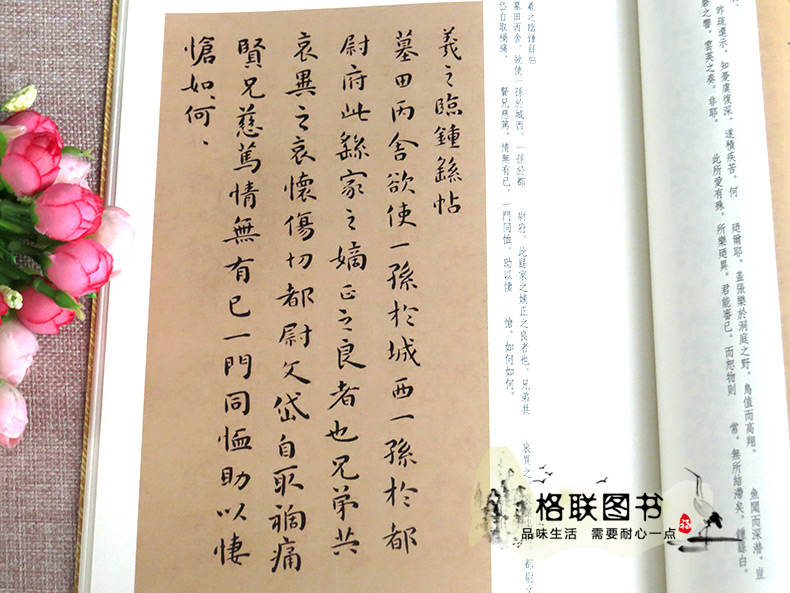 昨疏還示。知憂虞復深。遂積疾苦。何 迺爾耶。蓋張樂於洞庭之野。鳥值而高翔。 魚聞而深潛。豈
磬之響。雲英之奏。非耶。 此所愛有殊。所樂迺異。君能審己。而恕物則 常。無所結滯矣。鍾繇白。
羲之臨鍾繇帖
墓田丙舍。欲使一孫於城西。一孫於都 尉府。此繇家之嫡正之良者也。兄弟共 哀異之 都尉文
岱自取禍痛。 賢兄慈篤。情無有已。一門同恤。助以悽 愴。如何如何。
羲之臨鍾繇帖
墓田丙舍欲使一孫於城西一孫於都
尉府此繇家之嫡正之良者也兄弟共
哀異之哀懷傷切都尉文岱自取禍痛
賢兄慈篤情無有已一門同恤助以悽
愴如何、
格联图书
品味生活 需要耐心一点